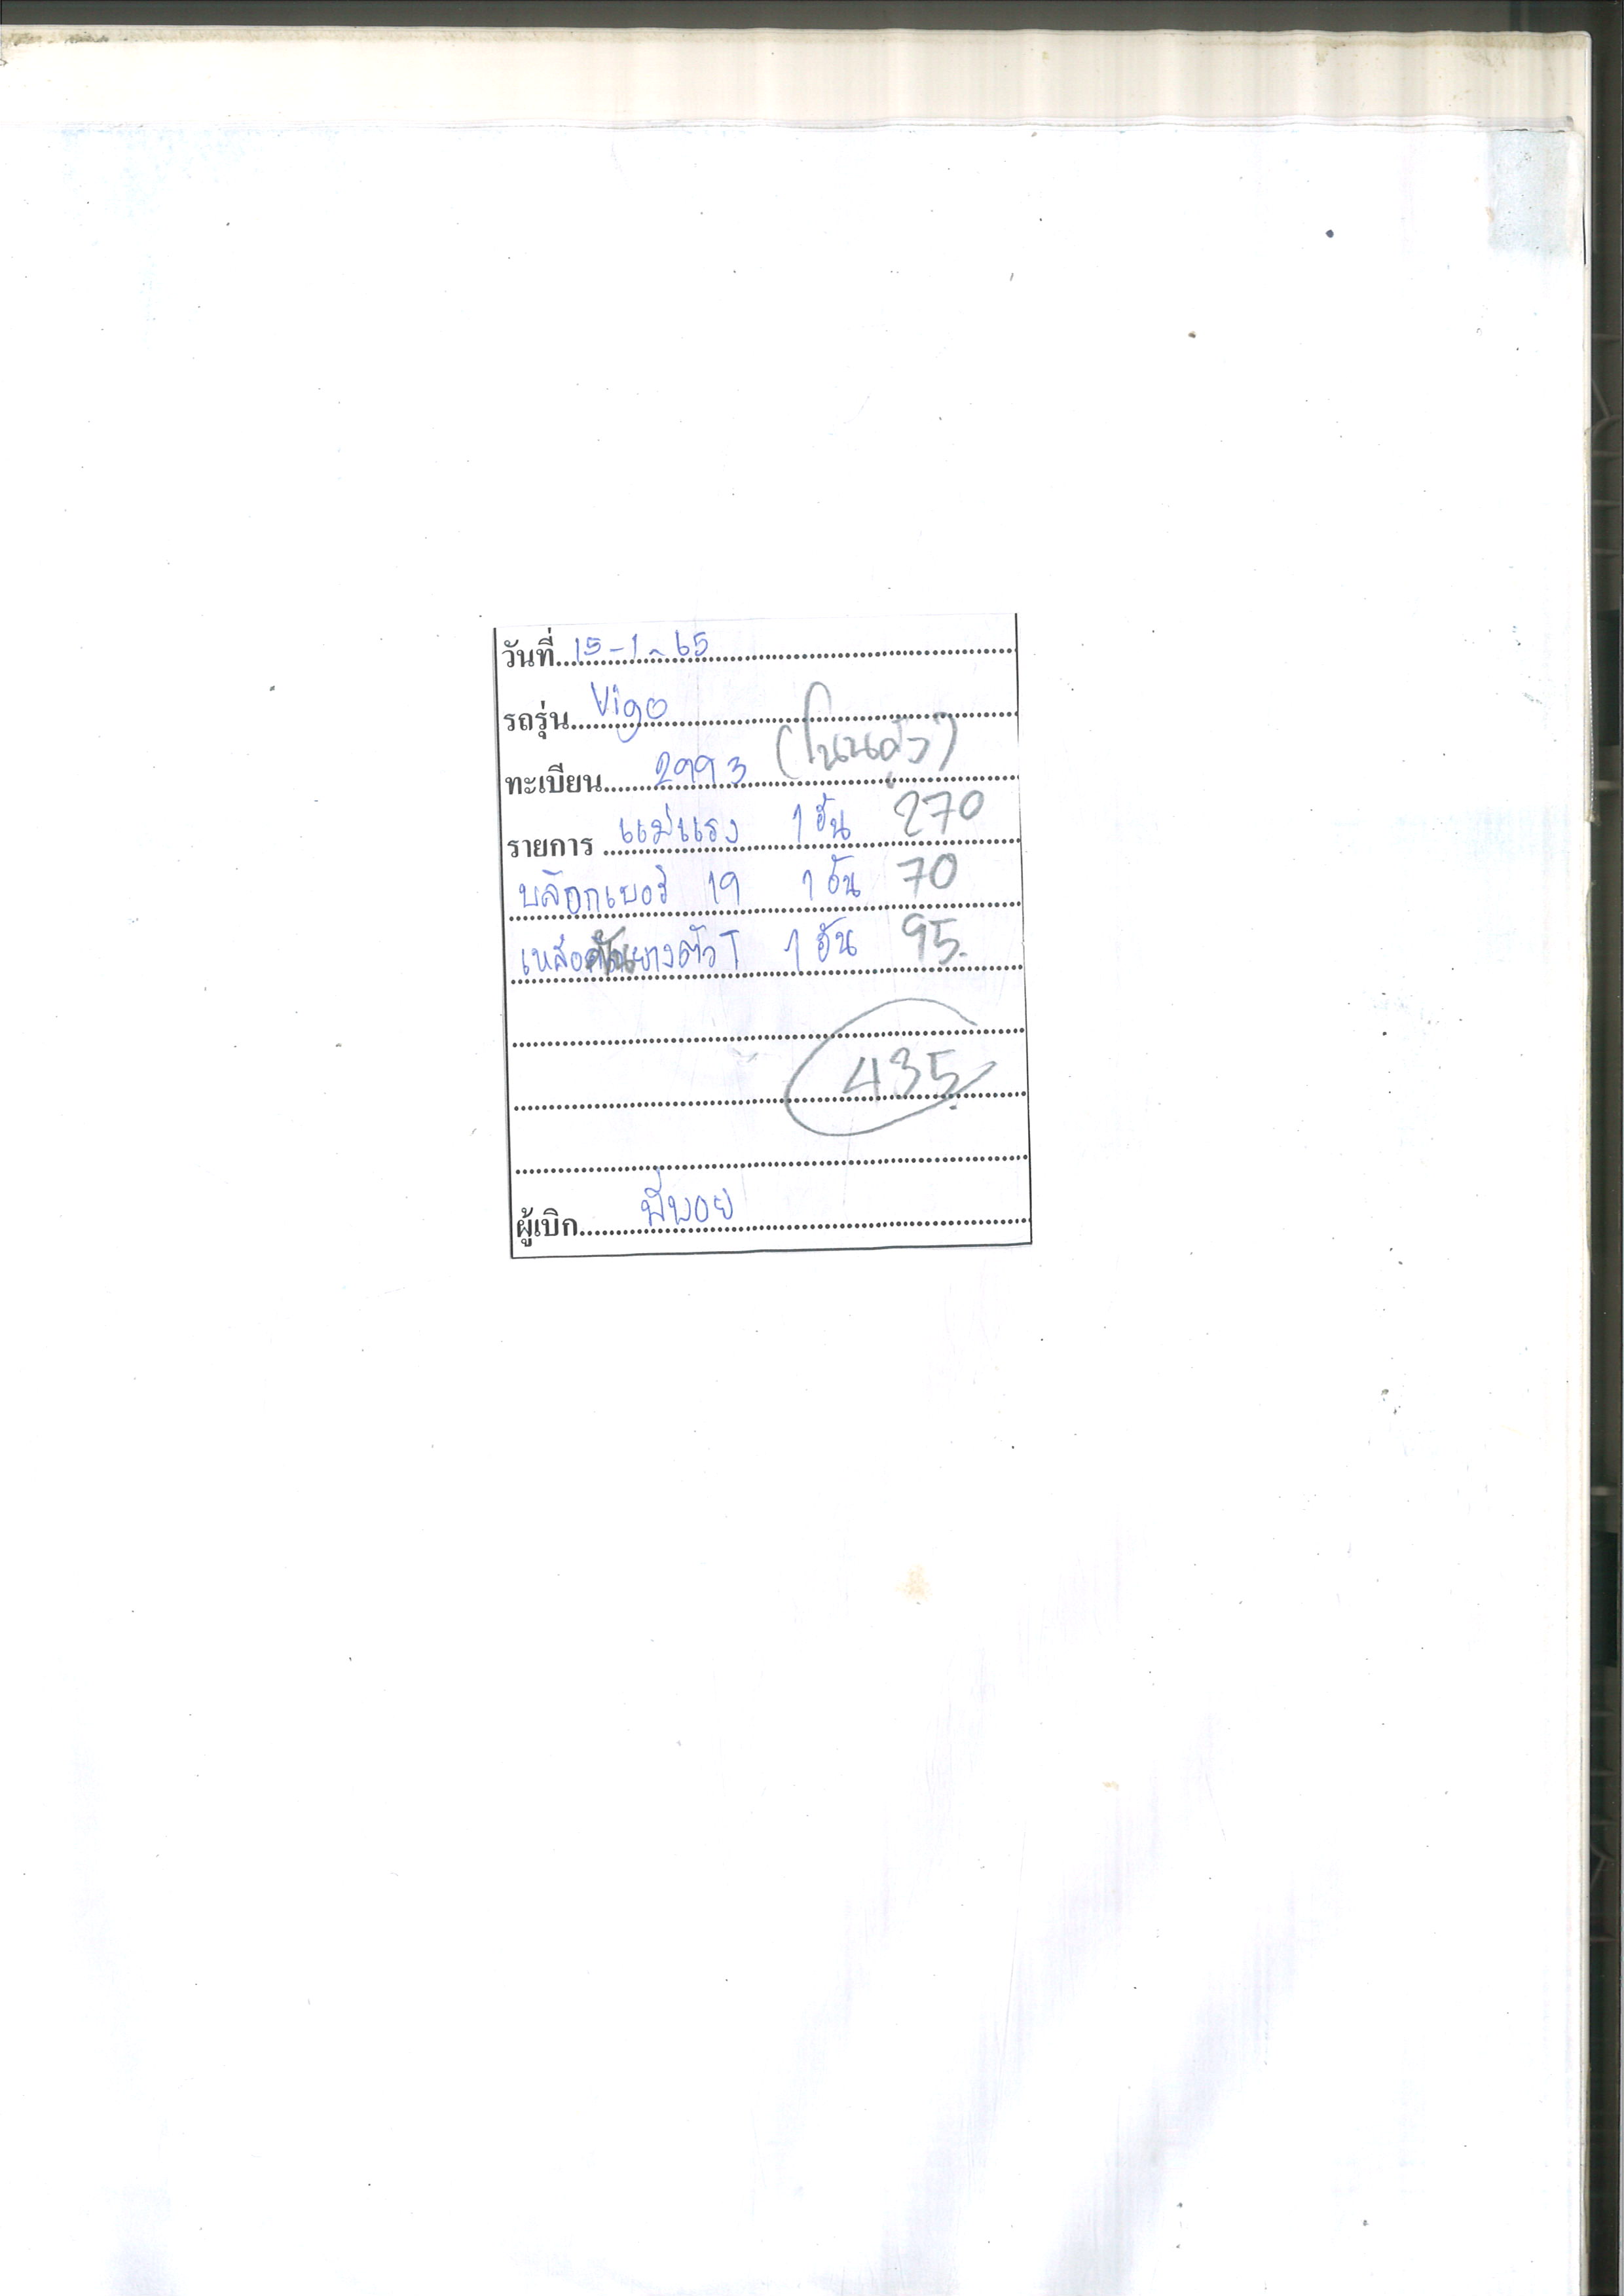 วันที่ 15-1-65
รถรุ่น Vigo
ทะเบียน 2993
รายการ แม่แรง 1 อัน 270
บล๊อกเบอร์ 19 1 อัน 70
ยางตัว T 1 อัน 95.
435
ผู้เบิก พี่บอย